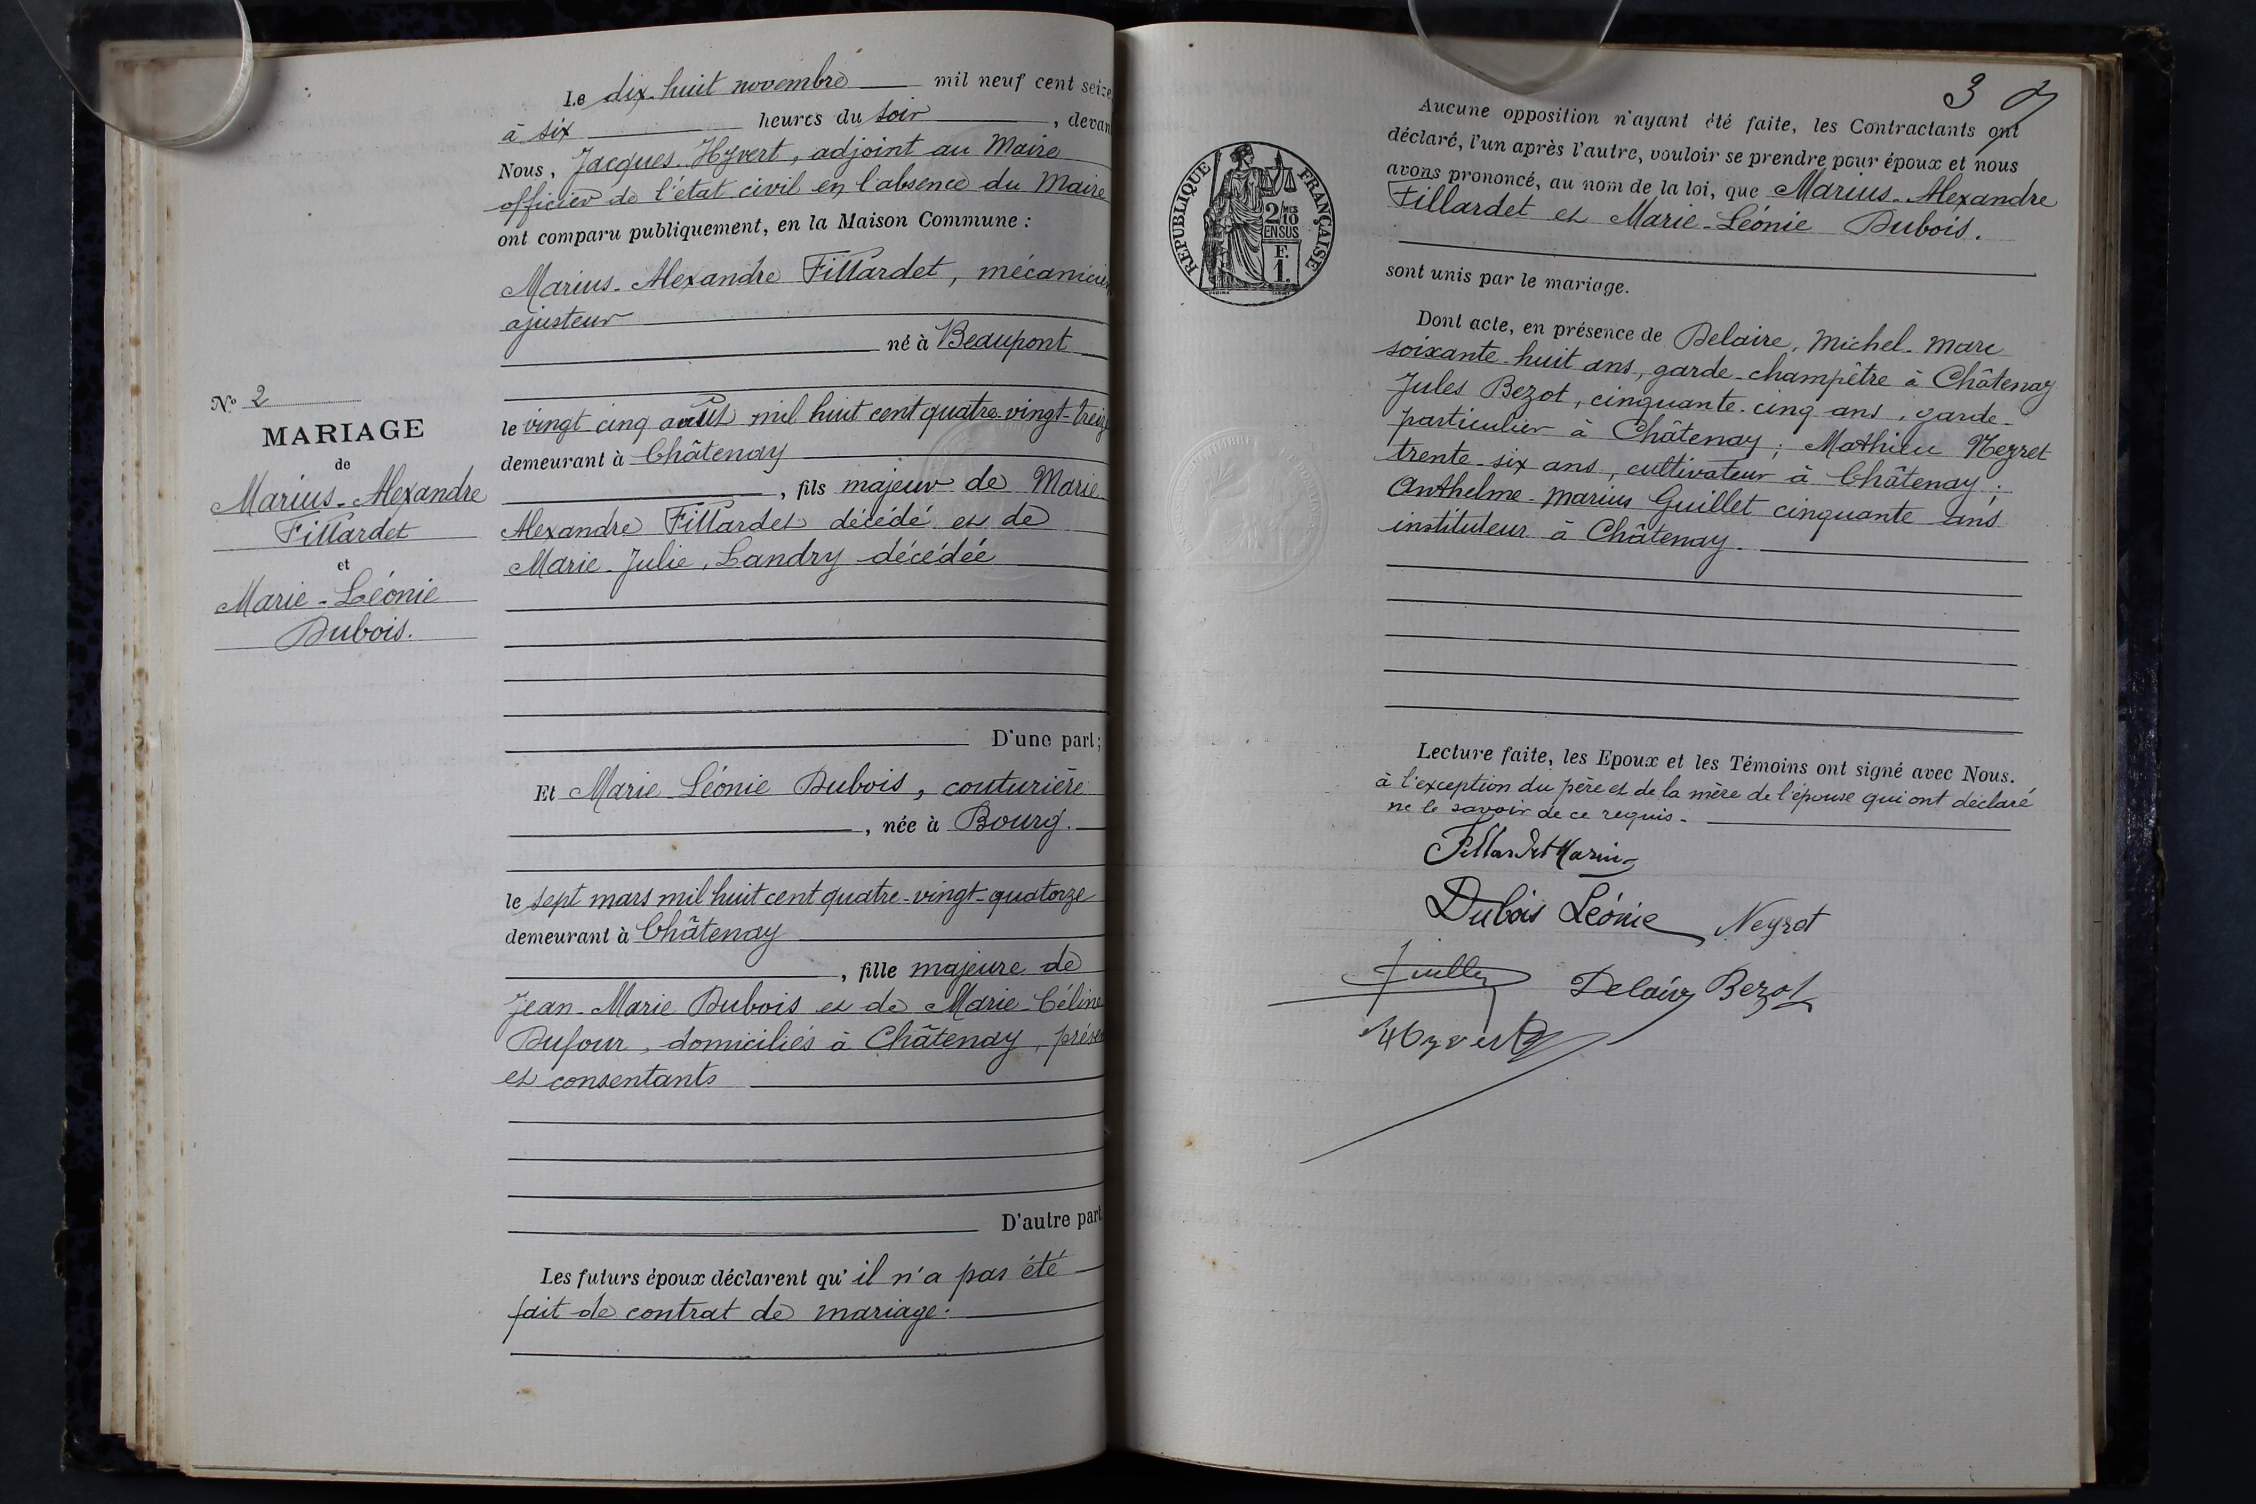 Le dix-huit novembre mil neuf cent seize
à six heures du soir, devan
Nous, Jacques Hyvert, adjoint au Maire
officier de l'état civil en l'absence du Maire
ont comparu publiquement, en la Maison Commune :
Marius-Alexandre Fillardet, mécanicien
ajusteur
né à Beaupont
le vingt cinq août mil huit cent quatre-vingt-treize
demeurant à Châtenay
, fils majeur de Marie
Alexandre Fillardet décédé et de
Marie-Julie, Landry décédée
D'une part;
Et Marie Léonie Dubois, couturière
, née à Bourg.
le sept mars mil huit cent quatre-vingt-quatorze
demeurant à Châtenay
, fille majeure de
Jean-Marie Dubois et de Marie-Céline
Dufour, domiciliés à Châtenay, prése
et consentants
D'autre part
Les futurs époux déclarent qu'il n'a pas été
fait de contrat de mariage.
N° 2
MARIAGE
de
Marius-Alexandre
Fillardet
et
Marie-Léonie
Dubois.
3
Aucune opposition n'ayant été faite, les Contractants ont
déclaré, l'un après l'autre, vouloir se prendre pour époux et nous
avons prononcé, au nom de la loi, que Marius-Alexandre
Fillardet et Marie-Léonie Dubois.
sont unis par le mariage.
RÉPUBLIQUE FRANÇAISE
2/10
EN SUS
F.
1.
Dont acte, en présence de Delaire, Michel-Marc
soixante-huit ans, garde-champêtre à Châtenay
Jules Bezot, cinquante-cinq ans, garde-
particulier à Châtenay; Mathieu Neyret
trente-six ans, cultivateur à Châtenay;
Anthelme-Marius Guillet cinquante ans
instituteur à Châtenay.
Lecture faite, les Epoux et les Témoins ont signé avec Nous.
à l'exception du père et de la mère de l'épouse qui ont déclaré
ne le savoir de ce requis.
Fillardet Marius
Dubois Léonie Neyret
Guillet Delaire Bezot
Hyvert